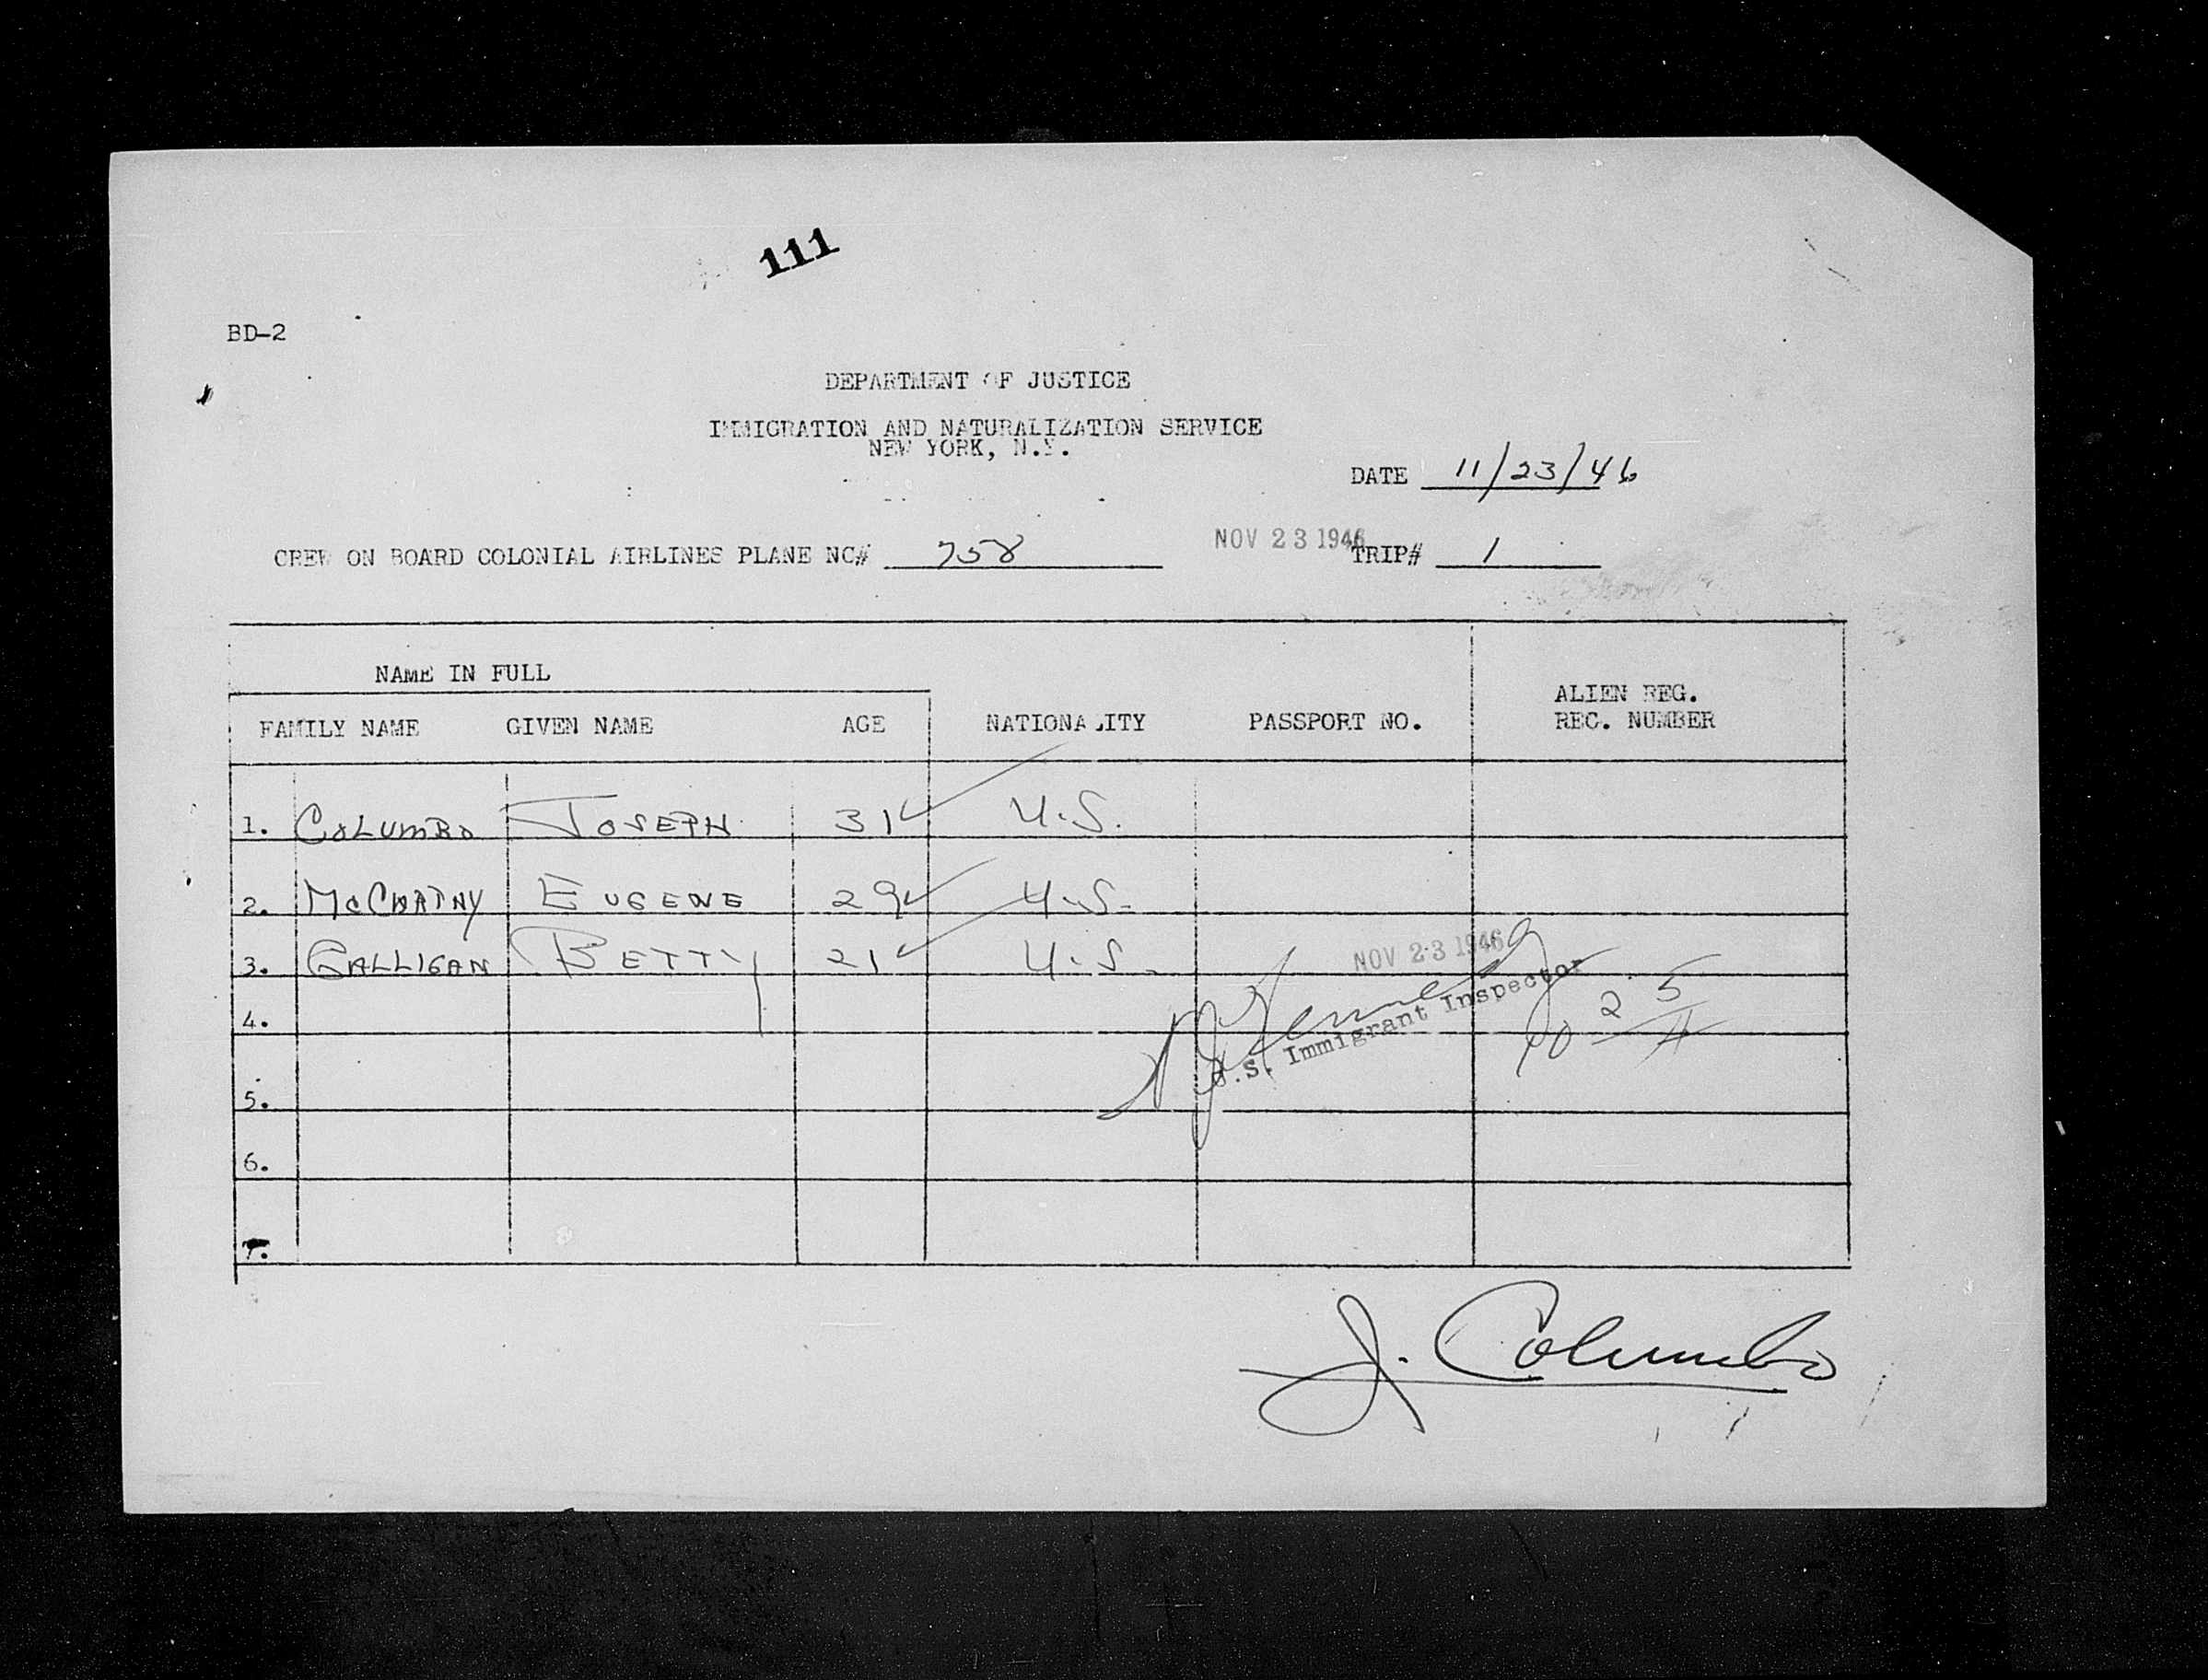 111
BD-2
DEPARTMENT OF JUSTICE
IMMIGRATION AND NATURALIZATION SERVICE
NEW YORK, N.Y.
DATE 11/23/46
CREW ON BOARD COLONIAL AIRLINES PLANE NC# 758 NOV 23 1946 TRIP# 1
NAME IN FULL
FAMILY NAME GIVEN NAME AGE NATIONALITY PASSPORT NO. ALIEN REG. REC. NUMBER
1. COLUMBO JOSEPH 31 U.S.
2. EUGENE 29 U.S.
3. GALLIGAN BETTY 21 U.S.
NOV 23 1946
U.S. Immigrant Inspector
4.
5.
6.
7.
J. Columbo